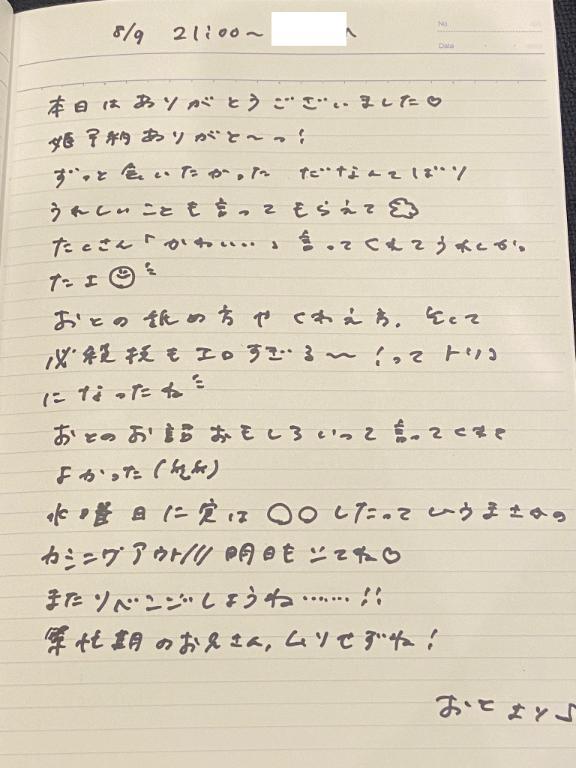 No.
Date
8/9 21:00〜
本日はありがとうございました♡
姫予約ありがと〜っ!
ずっと会いたかった だなんてばり
うれしいことも言ってもらえて
たくさん「かわいい」言ってくれてうれしかっ
たよ
おとの舐め方やくわえ方、そして
必殺技もエロすぎる〜!ってトリコ
になったね
おとのお話おもしろいって言ってくれて
よかった(笑)
水曜日に実は〇〇したっていうまさかの
カミングアウト///明日も してね♡
またリベンジしょうね……!!
繁忙期のお兄さん、ムリせずね!
おと より♪